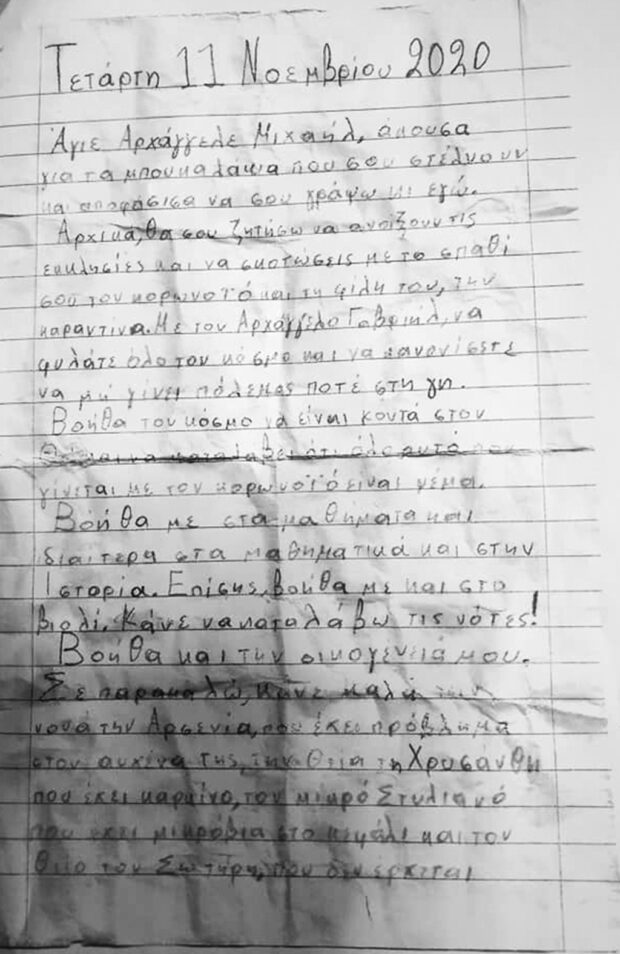 Τετάρτη 11 Νοεμβρίου 2020
Άγιε Αρχάγγελε Μιχαήλ, άκουσα
για τα μπουκαλάκια που σου στέλνουν
και αποφάσισα να σου γράψω κι εγώ.
Αρχικά, θα σου ζητήσω να ανοίξουν τις
εκκλησίες και να σκοτώσεις με το σπαθί
σου τον κορωνοϊό και τη φίλη του, την
καραντίνα. Με τον Αρχάγγελο Γαβριήλ, να
φυλάτε όλο τον κόσμο και να κανονίσετε
να μη γίνει πόλεμος ποτέ στη γη.
Βοήθα τον κόσμο να είναι κοντά στον
Θεό και να καταλάβει ότι όλο αυτό που
γίνεται με τον κορωνοϊό είναι ψέμα.
Βοήθα με στα μαθήματα και
ιδιαίτερα στα μαθηματικά και στην
Ιστορία. Επίσης, βοήθα με και στο
βιολί. Κάνε να καταλάβω τις νότες!
Βοήθα και την οικογένειά μου.
Σε παρακαλώ, κάνε καλά την
νονά την Αρσενία, που έχει πρόβλημα
στον αυχένα της, την θεία τη Χρυσάνθη
που έχει καρκίνο, τον μικρό Στυλιανό
που έχει μικρόβια στο κεφάλι και τον
θείο τον Σωτήρη, που δεν έρχεται